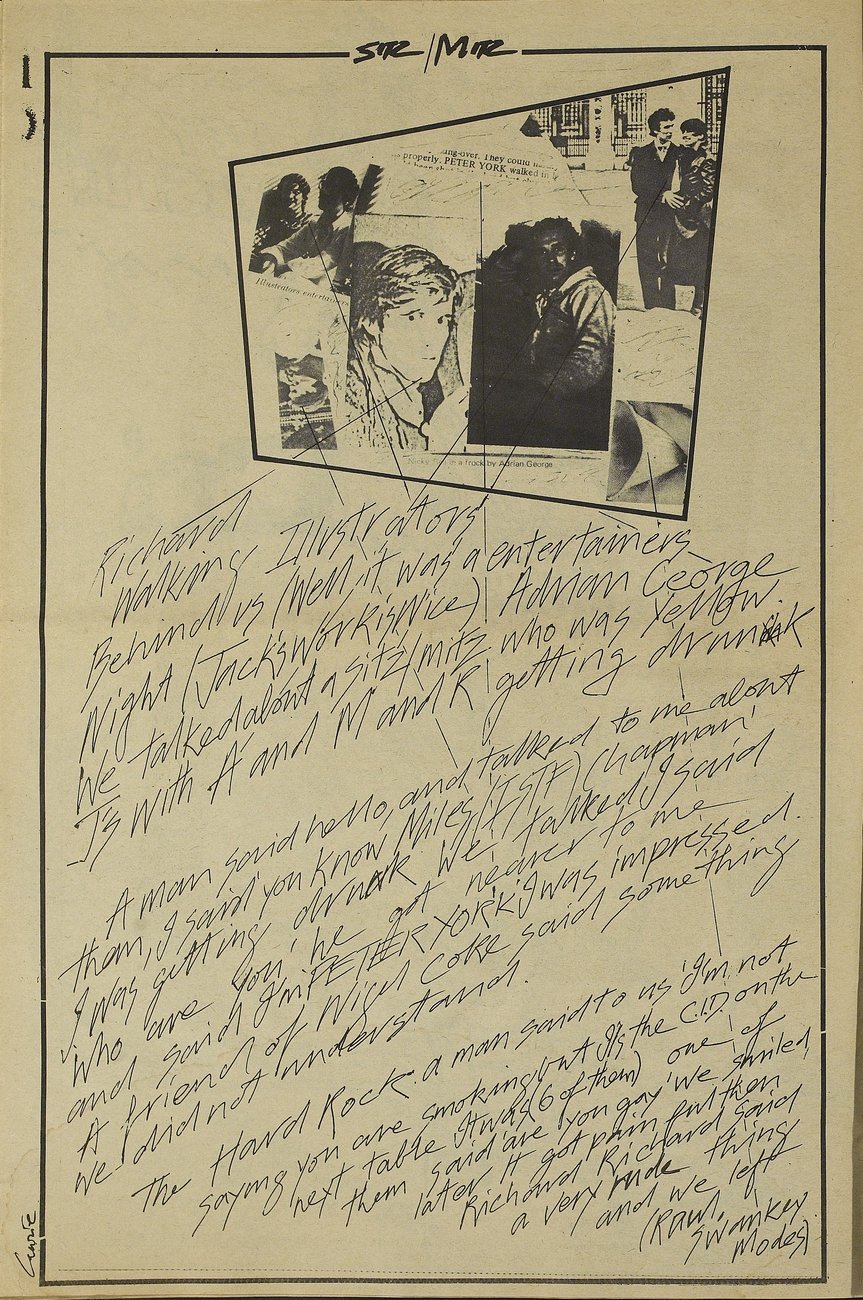 STR/MTR
ung-over. They could
properly. PETER YORK walked in
Illustrators entertainers
in a truck by Adrian George
Richard
Walking Illustrators
Behind us (Well, it was a entertainers
Night (Jack's work is Nice) Adrian George
We talked about a sitz/mitz who was Yellow.
J's with A and M and K getting drunk
A man said hello, and talked to me about
them, I said you know Miles (ISTE) Chapman'
I was getting drunk We talked, I said
'who are you' he got nearer to me
and said I'm PETER YORK I was impressed.
A friend of Nigel Coke said something
we did not understand.
The Hard Rock. a man said to us 'I'm not
saying you are smoking but It's the C.I.D. on the
next table It was (6 of them) one of
them said 'are you gay' we smiled
later it got painful then
Richard Richard said
a very rude thing
and we left
(Rawl.
Swankey
Modes)